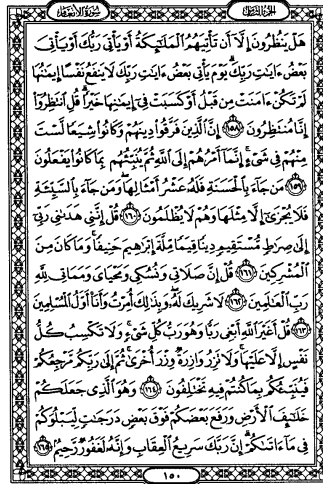 الجزء الثامن
سورة الأنعام
هَلۡ يَنظُرُونَ إِلَّآ أَن تَأۡتِيَهُمُ ٱلۡمَلَٰٓئِكَةُ أَوۡ يَأۡتِيَ رَبُّكَ أَوۡ يَأۡتِيَ
بَعۡضُ ءَايَٰتِ رَبِّكَۗ يَوۡمَ يَأۡتِي بَعۡضُ ءَايَٰتِ رَبِّكَ لَا يَنفَعُ نَفۡسًا إِيمَٰنُهَا
لَمۡ تَكُنۡ ءَامَنَتۡ مِن قَبۡلُ أَوۡ كَسَبَتۡ فِيٓ إِيمَٰنِهَا خَيۡرٗاۗ قُلِ ٱنتَظِرُوٓاْ
إِنَّا مُنتَظِرُونَ ١٥٨ إِنَّ ٱلَّذِينَ فَرَّقُواْ دِينَهُمۡ وَكَانُواْ شِيَعٗا لَّسۡتَ
مِنۡهُمۡ فِي شَيۡءٍۚ إِنَّمَآ أَمۡرُهُمۡ إِلَى ٱللَّهِ ثُمَّ يُنَبِّئُهُم بِمَا كَانُواْ يَفۡعَلُونَ
١٥٩ مَن جَآءَ بِٱلۡحَسَنَةِ فَلَهُۥ عَشۡرُ أَمۡثَالِهَاۖ وَمَن جَآءَ بِٱلسَّيِّئَةِ
فَلَا يُجۡزَىٰٓ إِلَّا مِثۡلَهَا وَهُمۡ لَا يُظۡلَمُونَ ١٦٠ قُلۡ إِنَّنِي هَدَىٰنِي رَبِّيٓ
إِلَىٰ صِرَٰطٖ مُّسۡتَقِيمٖ دِينٗا قِيَمٗا مِّلَّةَ إِبۡرَٰهِيمَ حَنِيفٗاۚ وَمَا كَانَ مِنَ
ٱلۡمُشۡرِكِينَ ١٦١ قُلۡ إِنَّ صَلَاتِي وَنُسُكِي وَمَحۡيَايَ وَمَمَاتِي لِلَّهِ
رَبِّ ٱلۡعَٰلَمِينَ ١٦٢ لَا شَرِيكَ لَهُۥۖ وَبِذَٰلِكَ أُمِرۡتُ وَأَنَا۠ أَوَّلُ ٱلۡمُسۡلِمِينَ
١٦٣ قُلۡ أَغَيۡرَ ٱللَّهِ أَبۡغِي رَبّٗا وَهُوَ رَبُّ كُلِّ شَيۡءٖۚ وَلَا تَكۡسِبُ كُلُّ
نَفۡسٍ إِلَّا عَلَيۡهَاۚ وَلَا تَزِرُ وَازِرَةٞ وِزۡرَ أُخۡرَىٰۚ ثُمَّ إِلَىٰ رَبِّكُم مَّرۡجِعُكُمۡ
فَيُنَبِّئُكُم بِمَا كُنتُمۡ فِيهِ تَخۡتَلِفُونَ ١٦٤ وَهُوَ ٱلَّذِي جَعَلَكُمۡ
خَلَٰٓئِفَ ٱلۡأَرۡضِ وَرَفَعَ بَعۡضَكُمۡ فَوۡقَ بَعۡضٖ دَرَجَٰتٖ لِّيَبۡلُوَكُمۡ
فِي مَآ ءَاتَىٰكُمۡۗ إِنَّ رَبَّكَ سَرِيعُ ٱلۡعِقَابِ وَإِنَّهُۥ لَغَفُورٞ رَّحِيمُۢ ١٦٥
١٥٠